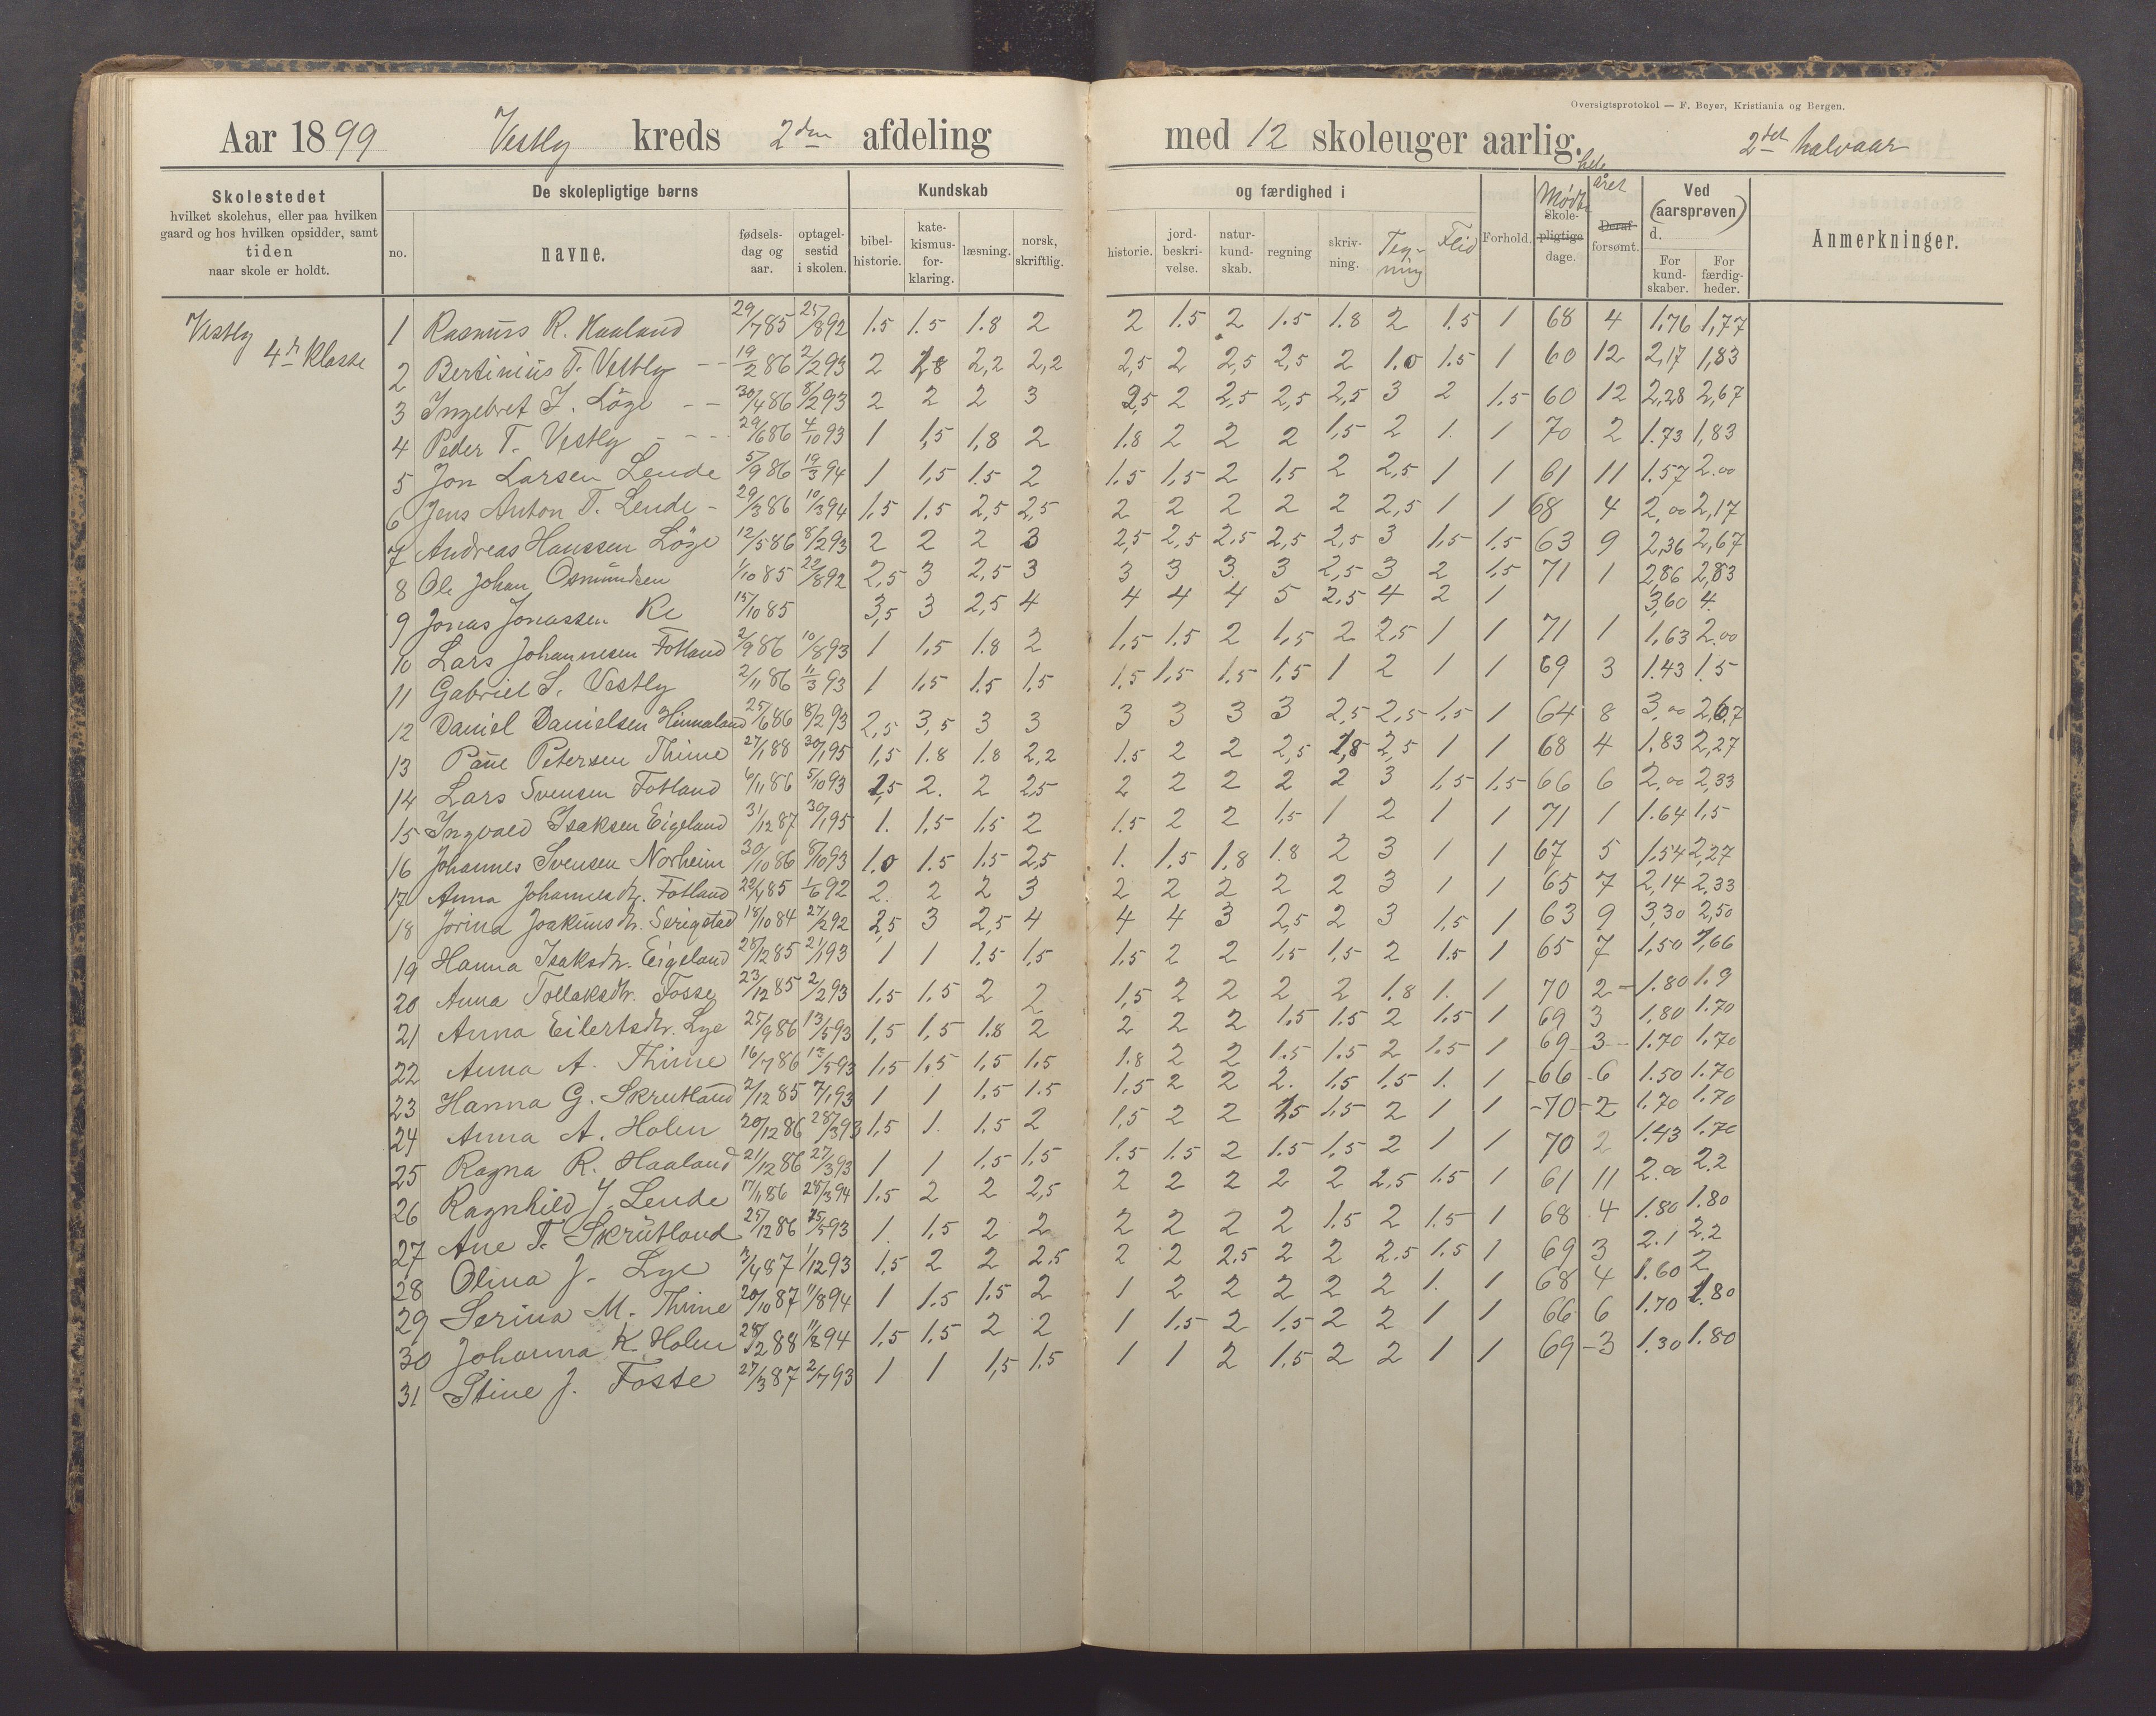 Oversigtsprotokol — F. Beyer, Kristiania og Bergen.
Aar 1899 Vestly kreds 2den afdeling med 12 skoleuger aarlig. 2det halvaar
Skolestedet hvilket skolehus, eller paa hvilken gaard og hos hvilken opsidder, samt tiden naar skole er holdt.
De skolepligtige børns
no. navne. fødsels-dag og aar. optagel-sestid i skolen.
Kundskab og færdighed i
bibel-historie. kate-kismus-for-klaring. læsning. norsk, skriftlig. historie. jord-beskri-velse. natur-kund-skab. regning skriv-ning. Teg-ning Flid Forhold.
Mødte hele året
Skole-pligtige dage. Deraf forsømt.
Ved (aarsprøven) d.
For kund-skaber. For færdig-heder.
Anmerkninger.
Vestly
4de Klasse
1 Rasmus R. Haaland 29/7 85 25/8 92 1.5 1.5 1.8 2 2 1.5 2 1.5 1.8 2 1.5 1 68 4 1,76 1,77
2 Bertinius T. Vestly 19/2 86 2/2 93 2 1,8 2,2 2,2 2,5 2 2,5 2,5 2 1.0 1.5 1 60 12 2,17 1,83
3 Ingebret J. Löge 30/4 86 8/2 93 2 2 2 3 2,5 2 2,5 2,5 2,5 3 2 1.5 60 12 2,28 2,67
4 Peder T. Vestly 29/6 86 4/10 93 1 1,5 1,8 2 1.8 2 2 2 1,5 2 1. 1 70 2 1.73 1,83
5 Jon Larsen Lende 5/9 86 19/3 94 1 1,5 1.5 2 1.5 1,5 2 1,5 2 2,5 1 1 61 11 1.57 2.00
6 Jens Anton T. Lende 29/3 86 10/3 94 1,5 1.5 2,5 2,5 2 2 2 2 2 2,5 1 1 68 4 2,00 2,17
7 Andreas Hanssen Löge 12/5 86 8/2 93 2 2 2 3 2,5 2,5 2,5 2,5 2,5 3 1,5 1.5 63 9 2,36 2,67
8 Ole Johan Osmundsen 1/10 85 22/8 92 2,5 3 2,5 3 3 3 3 3 2,5 3 2 1,5 71 1 2,86 2,83
9 Jonas Jonassen Re 15/10 85 3,5 3 2,5 4 4 4 4 5 2.5 4 2 1 3,60 4.
10 Lars Johannesen Fotland 2/9 86 10/8 93 1 1,5 1.8 2 1,5 1.5 2 1,5 2 2,5 1 1 71 1 1,63 2.00
11 Gabriel S. Vestly 2/11 86 11/3 93 1 1,5 1.5 1,5 1,5 1,5 1,5 1,5 1 2 1 1 69 3 1.43 1.5
12 Daniel Danielsen Hinnaland 25/6 86 8/2 93 2,5 3,5 3 3 3 3 3 3 2,5 2,5 1,5 1 64 8 3,00 2,67
13 Paul Petersen Thime 27/1 88 30/1 95 1,5 1.8 1.8 2,2 1.5 2 2 2,5 1,8 2,5 1 1 68 4 1.83 2,27
14 Lars Svensen Fotland 6/11 86 5/10 93 1,5 2. 2 2,5 2 2 2 2 2 3 1,5 1,5 66 6 2,00 2,33
15 Ingvald Isaksen Eigeland 31/12 87 30/1 95 1. 1,5 1,5 2 1.5 2 2 1,5 1 2 1 1 71 1 1.64 1,5
16 Johannes Svensen Norheim 30/10 86 8/10 93 1.0 1.5 1.5 2,5 1. 1,5 1,8 1.8 2 3 1 1 67 5 1,54 2,27
17 Anna Johannesdtr. Fotland 22/1 85 1/6 92 2. 2 2 3 2 2 2 2 2 3 1 1 65 7 2,14 2,33
18 Jorina Joakimsdtr. Serigstad 18/10 84 27/2 92 2,5 3 2,5 4 4 4 3 2,5 2 3 1,5 1 63 9 3,30 2,50
19 Hanna Isaksdtr. Eigeland 28/12 85 21/1 93 1 1 1.5 1,5 1,5 2 2 1,5 1,5 2 1.5 1 65 7 1,50 1,66
20 Anna Tollaksdtr. Fosse 23/12 85 2/2 93 1,5 1.5 2 2 1,5 2 2 2 2 1.8 1. 1 70 2 1.80 1.9
21 Anna Eilertsdtr. Lye 25/9 86 13/5 93 1,5 1,5 1.8 2 2 2 2 1,5 1.5 2 1.5 1 69 3 1,80 1.70
22 Anna A. Thime 16/7 86 13/5 93 1,5 1,5 1,5 1,5 1.8 2 2 1.5 1.5 2 1.5 1 69 3 1.70 1,70
23 Hanna G. Skrutland 2/12 85 7/1 93 1 1 1,5 1.5 1,5 2 2 2. 1,5 1,5 1. 1 66 6 1.50 1.70
24 Anna A. Holen 20/12 86 28/3 93 1,5 1. 1.5 2 1,5 2 2 1,5 1,5 2 1 1 70 2 1.70 1.70
25 Ragna R. Haaland 21/12 86 27/3 93 1 1 1,5 1,5 1.5 1.5 2 1.5 1,5 2 1 1 70 2 1.43 1.70
26 Ragnhild J. Lende 17/11 86 28/3 94 1,5 2 2 2,5 2 2 2 2 2 2.5 1.5 1 61 11 2.00 2.2
27 Ane T. Skrutland 25/12 86 25/5 93 1. 1,5 2 2 2 2 2 2 1.5 2 1.5 1 68 4 1.80 1.80
28 Olina J. Lye 3/4 87 1/12 93 1,5 2 2 2.5 2 2 2.5 2 2 2.5 1.5 1 69 3 2.1 2.2
29 Serina M. Thime 20/10 87 11/8 94 1 1.5 1.5 2 1 2 2 2 2 2 1. 1 68 4 1.60 2
30 Johanna K. Holen 28/2 88 11/8 94 1,5 1,5 2 2 1 1.5 2 1.5 2 2 1 1 66 6 1.70 1.80
31 Stine J. Fosse 27/3 87 2/7 93 1 1 1,5 1.5 1 1 2 1.5 2 2 1 1 69 3 1.30 1.80